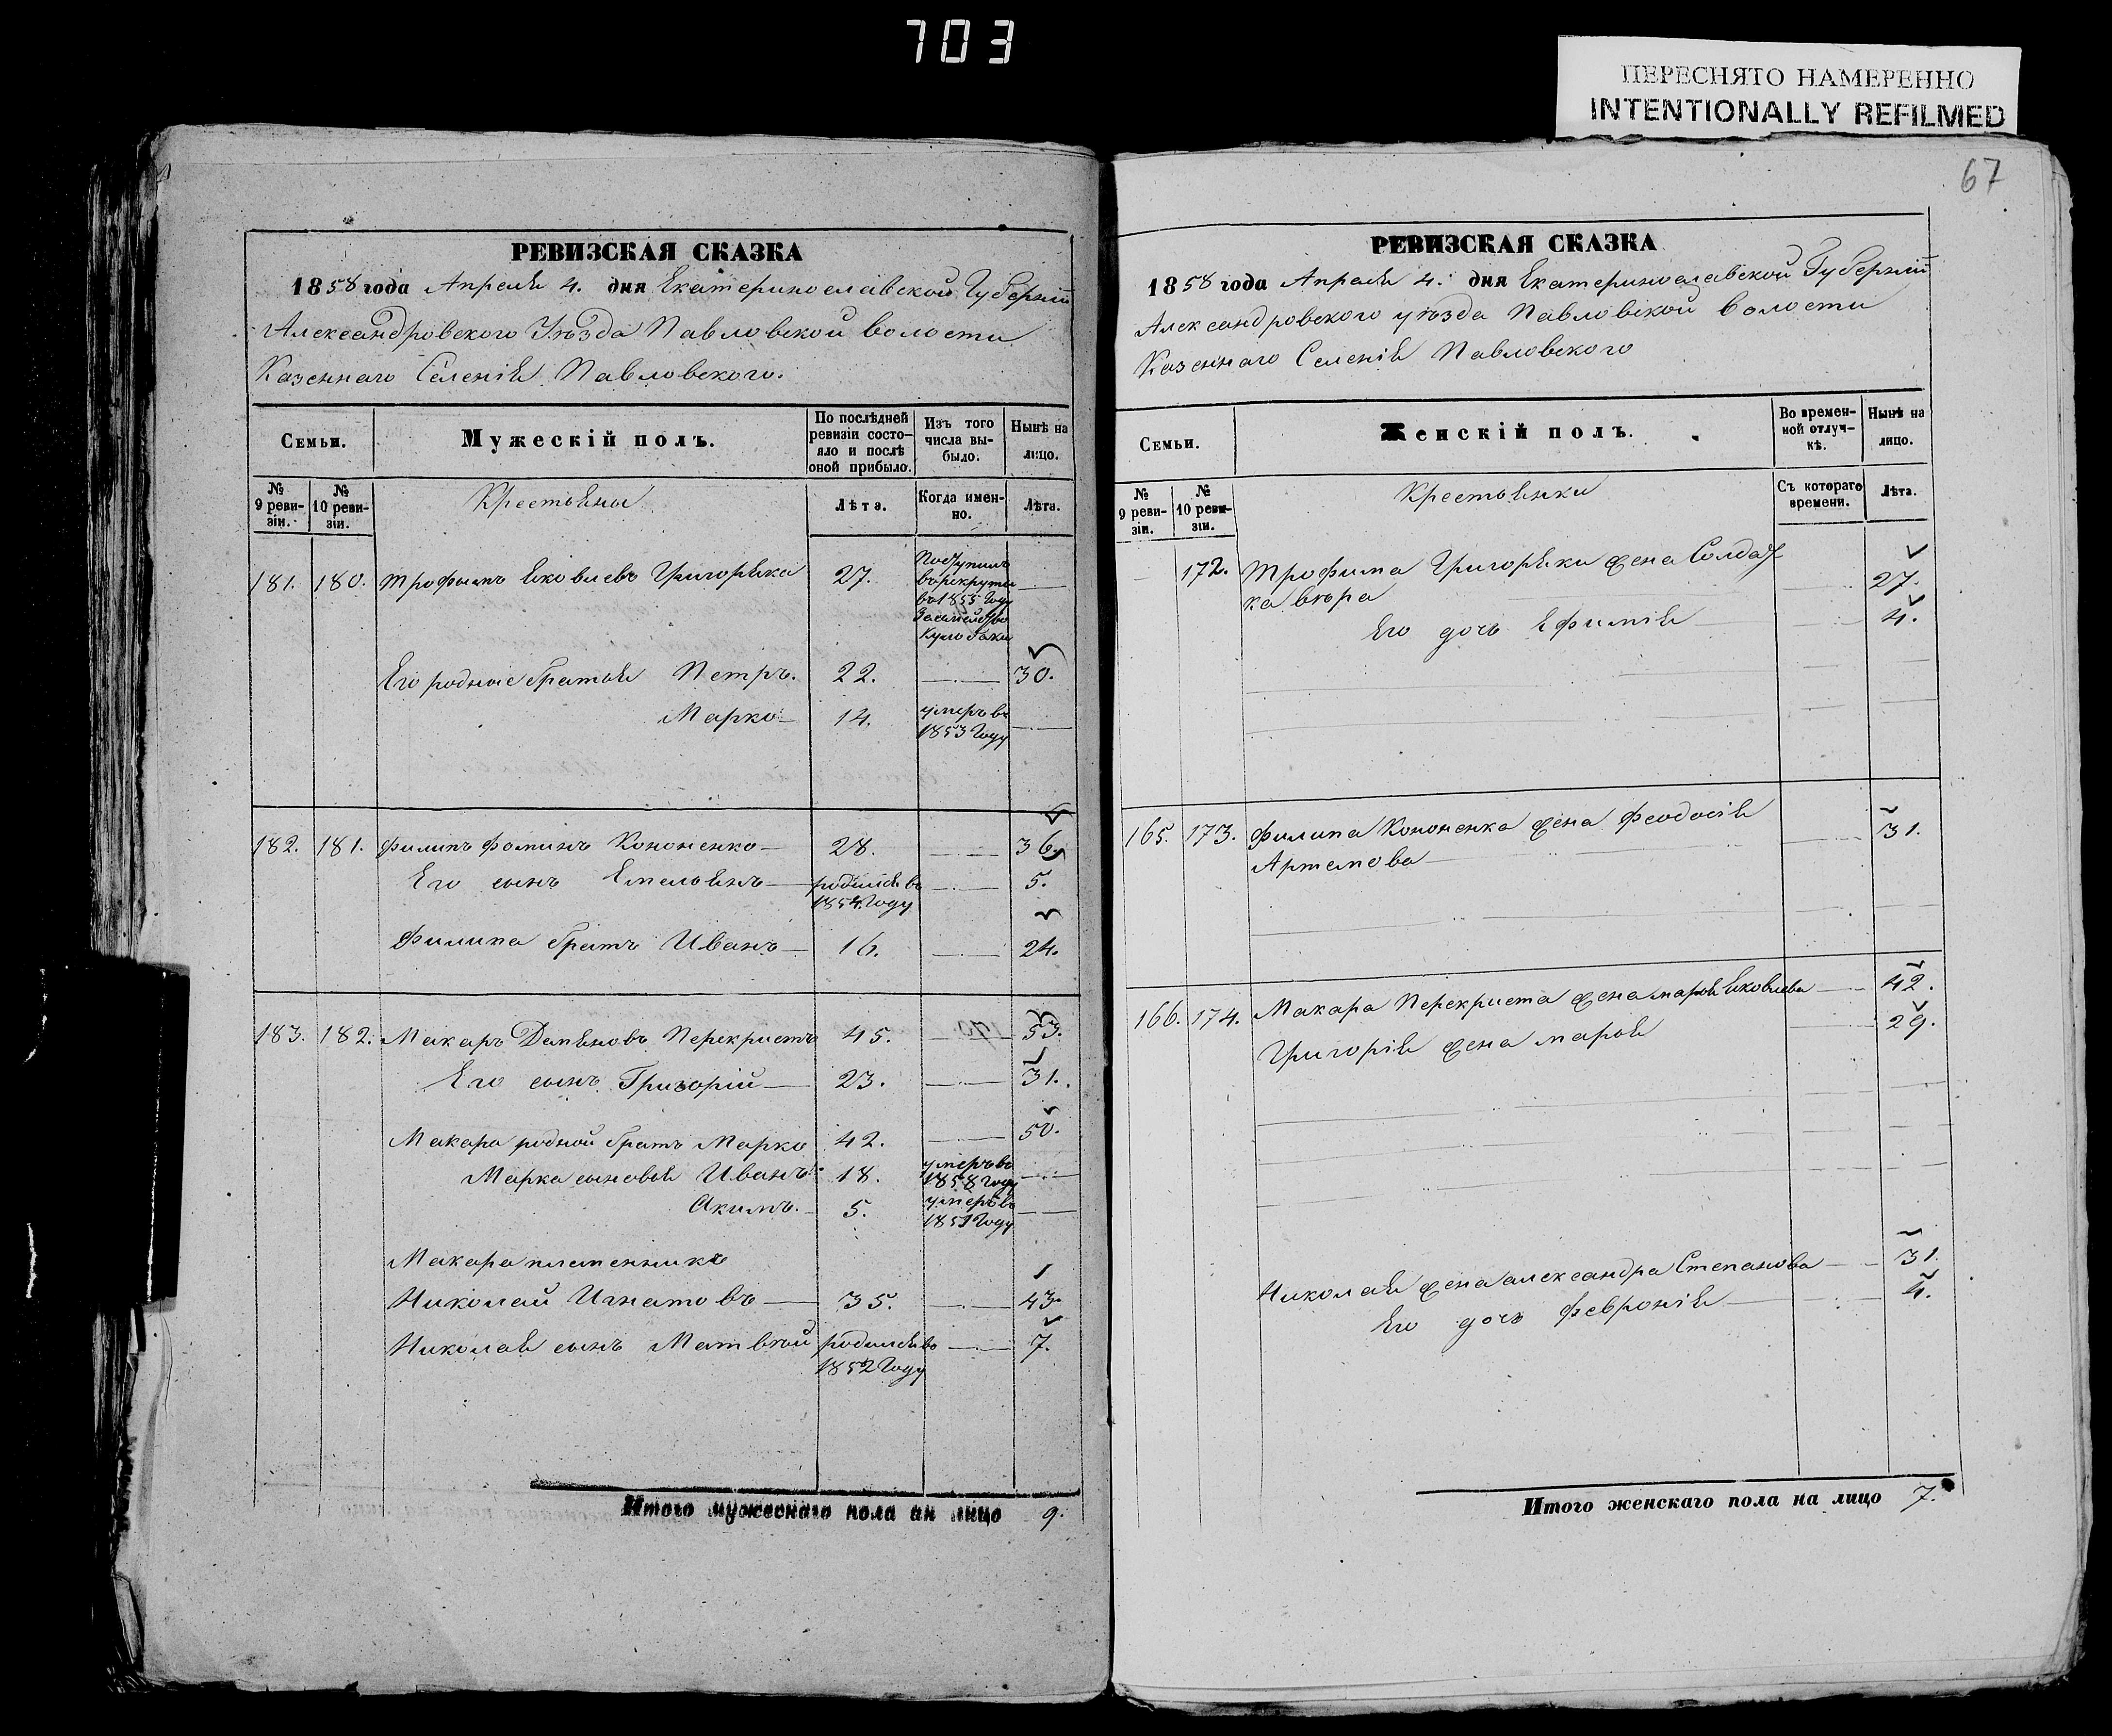 703
ПЕРЕСНЯТО НАМЕРЕННО
INTENTIONALLY REFILMED
67
РЕВИЗСКАЯ СКАЗКА
1858 года Апреля 4. дня Екатеринославской Губернии
Александровского Уѣзда Павловской волости
Казеннаго Селенія Павловского.
Семьи.
Мужескій полъ.
По послѣдней ревизіи состояло и послѣ оной прибыло.
Изъ того числа выбыло.
Нынѣ на лицо.
№ 9 ревизіи.
№ 10 ревизіи.
Крестьяны
Лѣта.
Когда именно.
Лѣта.
181. 180. Трофымъ Яковлевъ Григорѣка 27. Поступилъ
в рекруты
въ 1855 Году
Его родніе братья Петръ. 22. 30.
Марко 14. умеръ въ
1853 Году
182. 181. Филипъ Фоминъ Кононенко 28. 36.
Его сынъ Емельянъ родился въ 5.
1854 Году
Филипа братъ Иванъ 16. 24.
183. 182. Макаръ Демяновъ Перекристъ 45. 53.
Его сынъ Григорій 23. 31.
Макара родной братъ Марко 42. 50.
Марка сыновья Иванъ 18. умеръ въ
1858 Году
Акимъ. 5. умеръ въ
1851 Году
Макара племенникъ
Николай Игнатовъ 35. 43.
Николая сынъ Матвѣй родился въ 7.
1852 Году
Итого мужескаго пола ан лицо 9.
РЕВИЗСКАЯ СКАЗКА
1858 года Апреля 4. дня Екатеринославской Губернии
Александровского уѣзда Павловской волости
Казеннаго Селенія Павловского
Семьи.
Женскій полъ.
Во временной отлучкѣ.
Нынѣ на лицо.
№ 9 ревизіи.
№ 10 ревизіи.
Крестьянки
Съ котораго времени.
Лѣта.
172. Трофима Григорѣки жена Солдат
ка вѣра 27.
Его дочь Ефимія 4.
165. 173. Филипа Кононенка жена Феодосія 31.
Артемова
166. 174. Макара Перекриста жена марія Яковлева 42.
Григорія жена марья 29.
Николая жена александра Степанова 31.
Его дочь Февронія 4.
Итого женскаго пола на лицо 7.